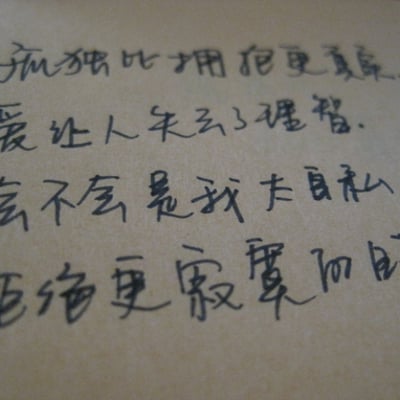 孤独比拥抱更真实.
爱让人失去了理智.
会不会是我太自私
拒绝更寂寞的